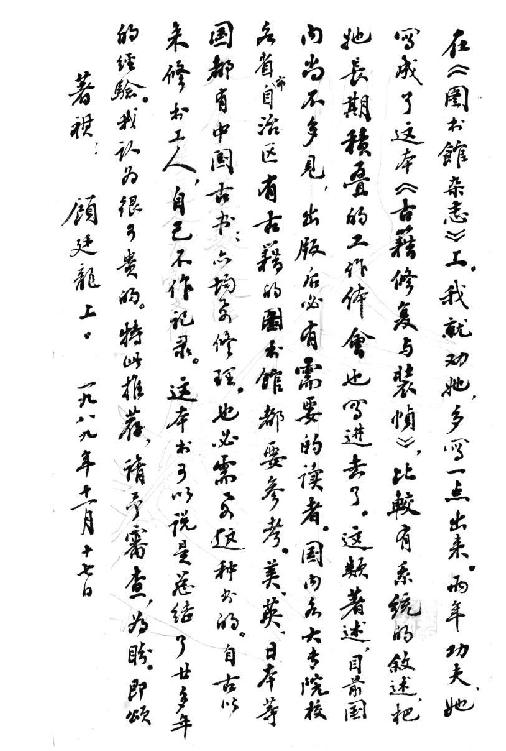 在《图书館杂志》上。我就劝她,多写一点出来。两年功夫,她
写成了这本《古籍修复与装帧》,比較有系统的敘述,把
她長期積叠的工作体會也写進去了。这類著述,目前国
内尚不多見,出版后必有需要的读者。国内各大专院校
各省市自治区有古籍的圖书館都要参考。美、英、日本等
国都有中国古书,亦均要修理。也必需要这种书的。自古以
来修书工人,自己不作记录。这本书可以说是总结了廿多年
的经验。我认为很可贵的。特此推荐,請予審查,为盼。即頌
著祺! 顧廷龍上。 一九八九年十一月十七日